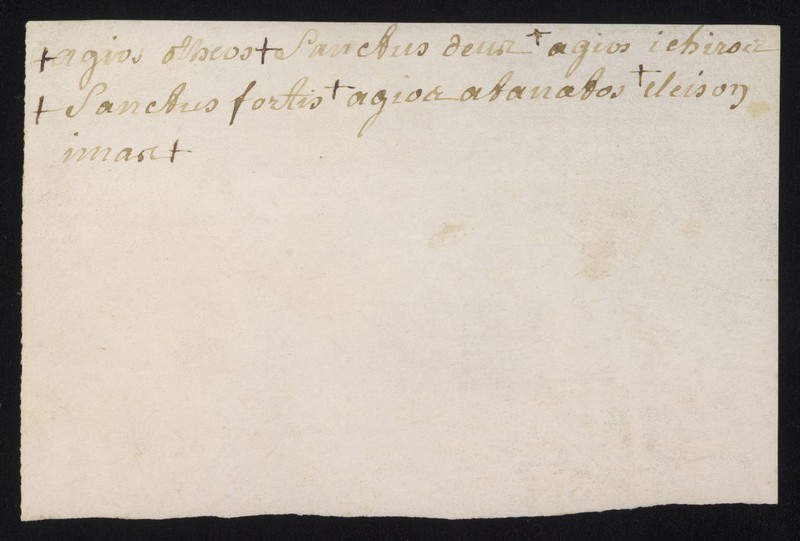 +agios otheos+Sanctus deus +agios ichiros
+ Sanctus fortis +agios atanatos +eleison
imas+